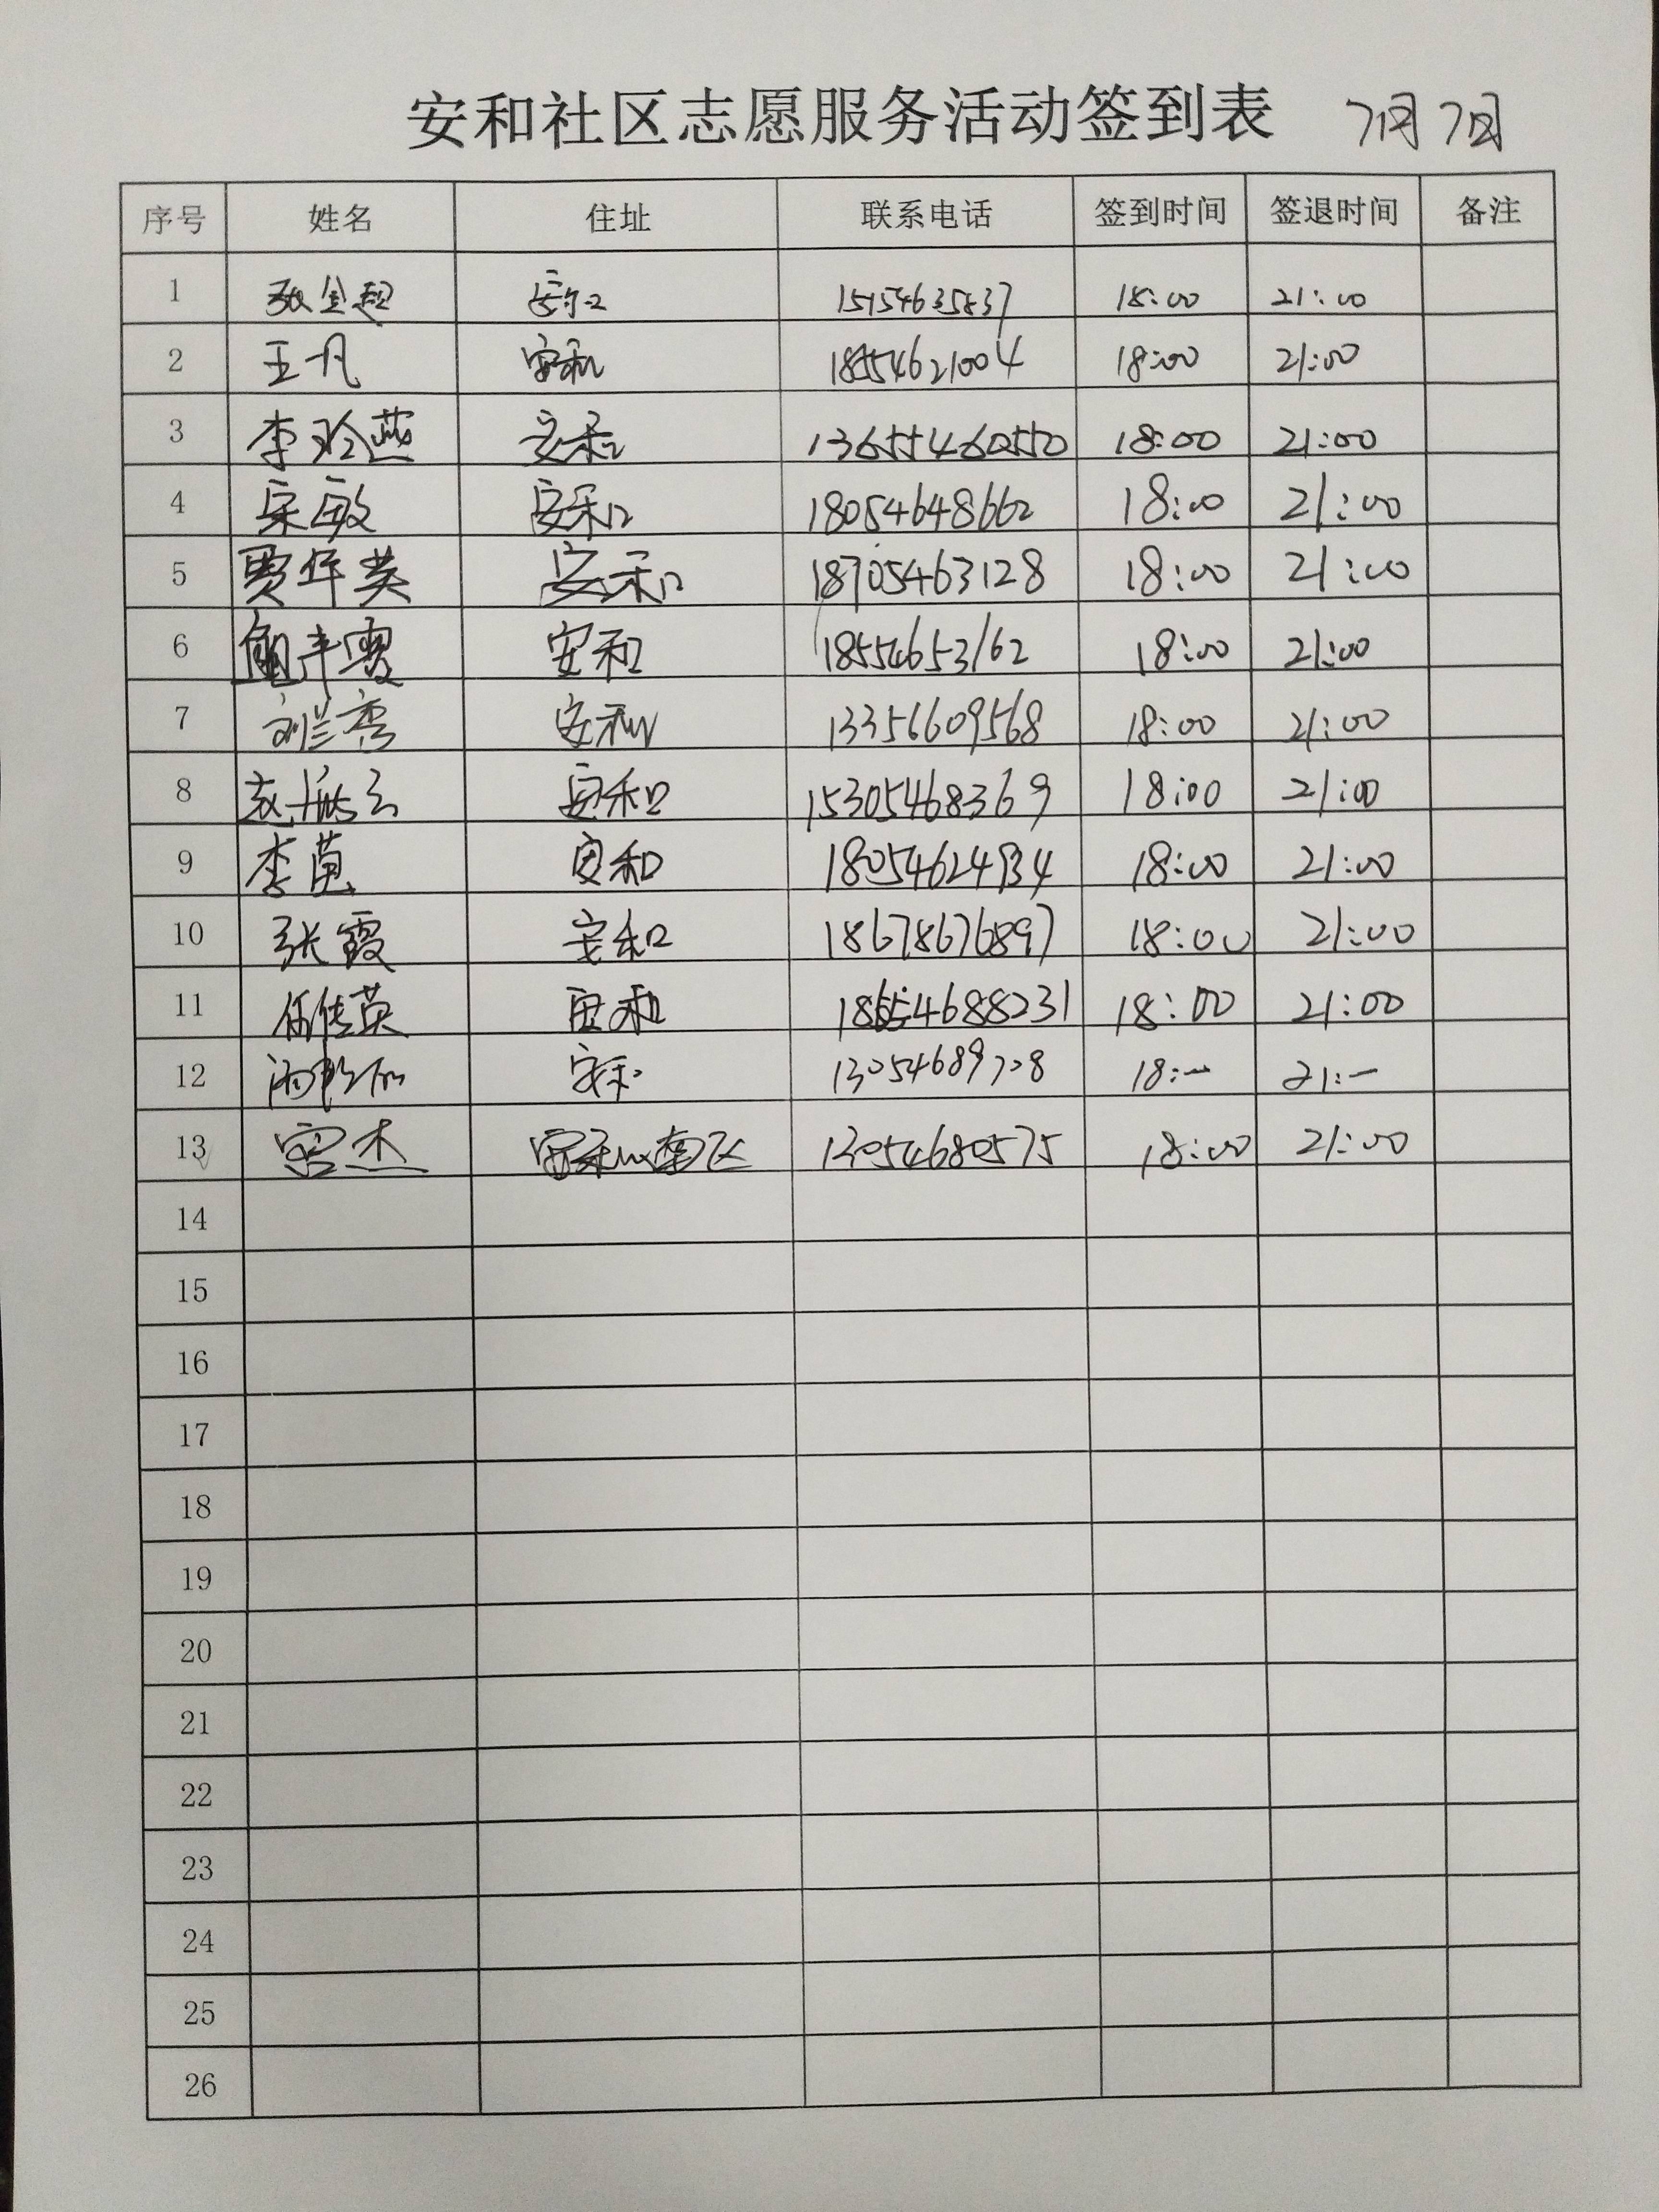 安和社区志愿服务活动签到表 7月7日
序号 姓名 住址 联系电话 签到时间 签退时间 备注
1 张金超 安和 15154635837 18:00 21:00
2 王凡 安和 18554621004 18:00 21:00
3 李玲燕 安和 13655460550 18:00 21:00
4 宋敏 安和 18054648662 18:00 21:00
5 贾华英 安和 18705463128 18:00 21:00
6 安和 18554653162 18:00 21:00
7 刘兰秀 安和 13356609568 18:00 21:00
8 安和 15305468369 18:00 21:00
9 李苗 安和 18:00 21:00
10 张霞 安和 18678676897 18:00 21:00
11 任传英 安和 18654688231 18:00 21:00
12 安和 13054689708 18:— 21:—
13 宫杰 安和南区 13054680575 18:00 21:00
14
15
16
17
18
19
20
21
22
23
24
25
26